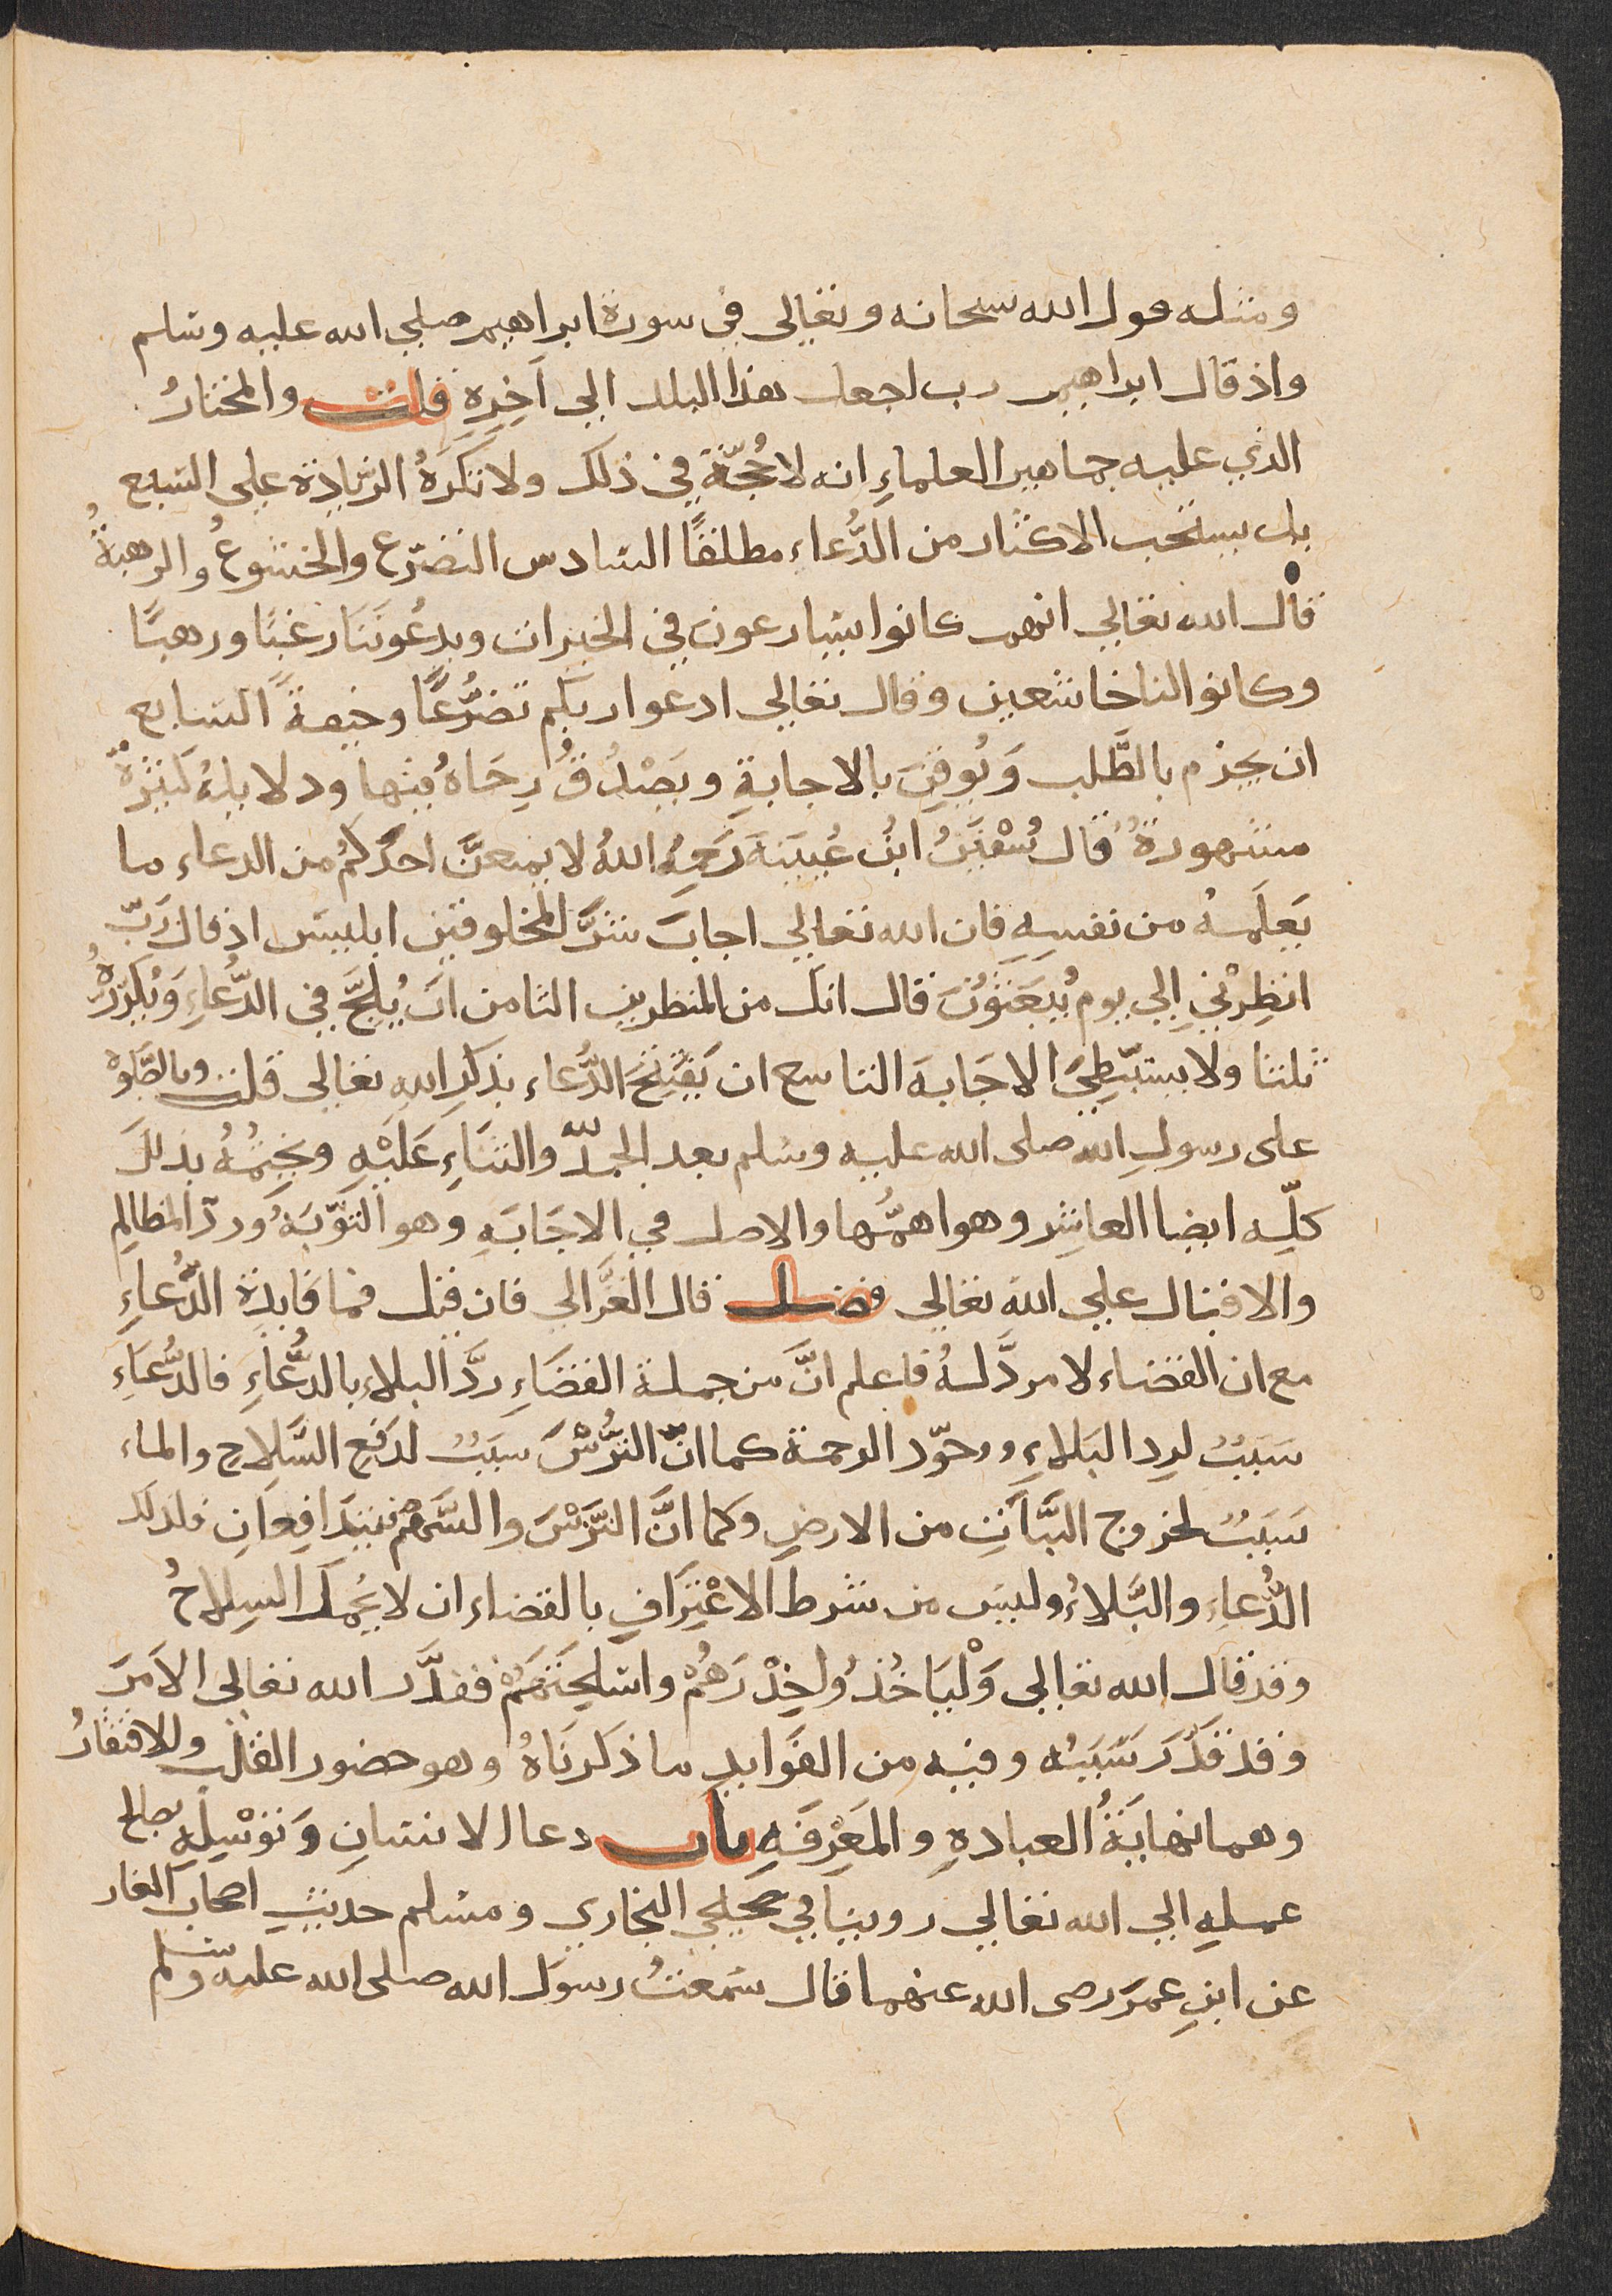 ومثله قول الله سبحانه وتعالى في سورة ابراهيم صلى الله عليه وسلم
واذ قال ابراهيم رب اجعل هذا البلد الي آخِرِهِ قلت والمختارُ
الذي عليه جماهير العلماءِ انه لا حُجّة في ذلك ولا تكرَهُ الزّيادة على السّبع
بل يستحب الاكثار من الدُّعاء مطلقًا السّادس التضرّع والخشوعُ والرهبةُ
قال الله تعالي انهم كانوا يسارعون في الخيرات ويدعُونَنَا رغبًا ورهبًا
وكانوا لنا خاشعين وقال تعالى ادعوا ربكم تضرُّعًا وخيفةً السّابع
ان يجزم بالطَّلب وَيُوقِنَ بالاجابةِ ويَصْدُقُ رِجَاهُ فيها ودلايلهُ كثيرةٌ
مشهورةٌ قال سُفْيَنُ ابنُ عُيينَةَ رَحمِهُ اللهُ لا يمنعنَّ احدَكمُ من الدعاء ما
يَعلَمهُ من نفسِهِ فان الله تعالي اجابَ شرَّ المخلوقين ابليسَ اذ قال رَبّ
انظِرْني إلي يوم يُبعَثوُنَ قال انك من المنظرين الثامن ان يُلِحَّ في الدُّعاءِ وَيُكرّرهُ
ثلثا ولا يستبّطِئَ الاجَابهَ التاسع ان يَفتِحَ الدُّعاء بذكرِ اللهِ تعالي قلت وبالصَّلوة
على رسولِ الله صلى الله عليه وسلم بعد الحمدِ لله والثنَاءِ عَليْهِ ويختِمُهُ بذلكَ
كلِّه ايضا العاشِر وهو اهمُّها والاصل في الاجَابَهِ وهو التوّبَهُ وردّ المظالمِ
والاقبال علي الله تعالي فصل قال الغزَّالي فان قيل فما فايدة الدُّعاءِ
مع ان القضاء لا مردَّ لهُ فاعلم انَّ من جملة القضَاءِ ردَّ البلاء بالدُّعاءِ فالدُّعَاءِ
سَبَبٌ لردِ البَلاءِ ووجوّد الرحمة كما انّ التُرُّسَ سبَبٌ لدَفعِ السَّلاحِ والماء
سَبَبٌ لخروج النَّباتِ من الارضِ وكما انَّ التّرْسَ والسَّهمَ يتدَافِعاَنِ فلذلك
الدُّعاءِ والبَّلاءُ وليسَ من شرط الاعْتِرَافِ بالقضاء ان لا يُحمَلَ السِلاحُ
وقد قال الله تعالى وَلْيَاخُذُوا حِذْرَهُمْ واسْلِحتَهَمُ فقدَّر الله تعالي الاَمرَ
وقد قدّرَ سَبَبهُ وفيه من الفَوايدِ ما ذكرنَاهُ وهو حضور القلب والافتقارُ
وهما نهايَةُ العبادهِ والمَعرِفَهِ باب دعا الانسَانِ وَتوَسُّلِهِ بصالح
عملهِ الي الله تعالي روينا في صحيحي البخاري ومسْلم حديثِ اصحابَ الغار
عن ابنِ عمرَ رضى الله عنهما قال سَمعتُ رسولَ الله صلى الله عليه وسلم